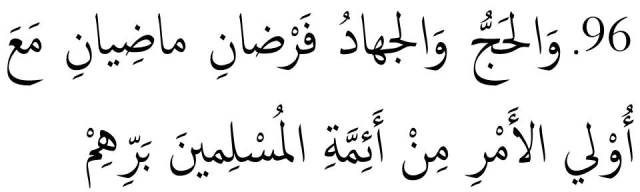 96. وَالحَجُّ وَالجِهادُ فَرْضانِ ماضِيانِ مَعَ
أُوْلي الأَمْرِ مِنْ أَئِمَّةِ المُسْلِمينَ بَرِّهِمْ